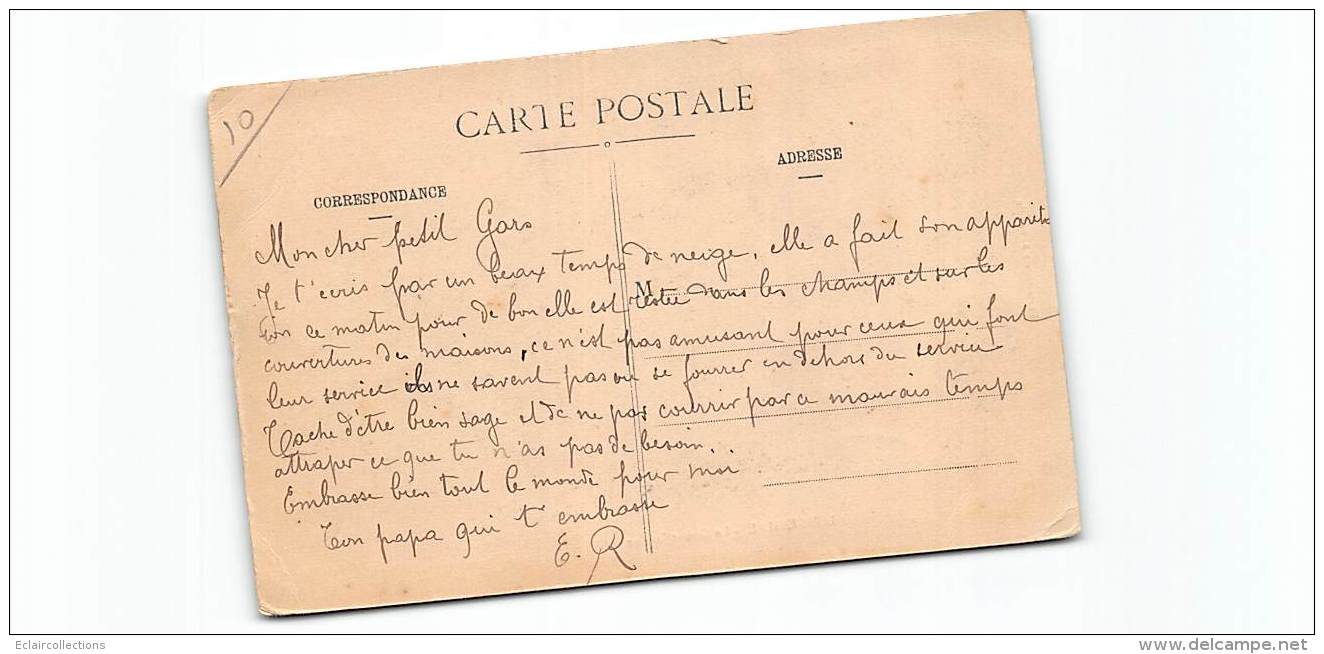 10
CARTE POSTALE
CORRESPONDANCE
ADRESSE
M
Mon cher petit Gars
Je t'écris par un beaux temps de neige, elle a fait son apparit
ion ce matin pour de bon elle est restée dans les champs et sur les
couvertures des maisons, ce n'est pas amusant pour ceux qui font
leur service ils ne savent pas ou se fourrer en dehors du service
Tache d'être bien sage et de ne pas courrir par ce mauvais temps
attraper ce que tu n'as pas de besoin.
Embrasse bien tout le monde pour moi
Ton papa qui t'embrasse
E. R
Eclaircollections
www.delcampe.net